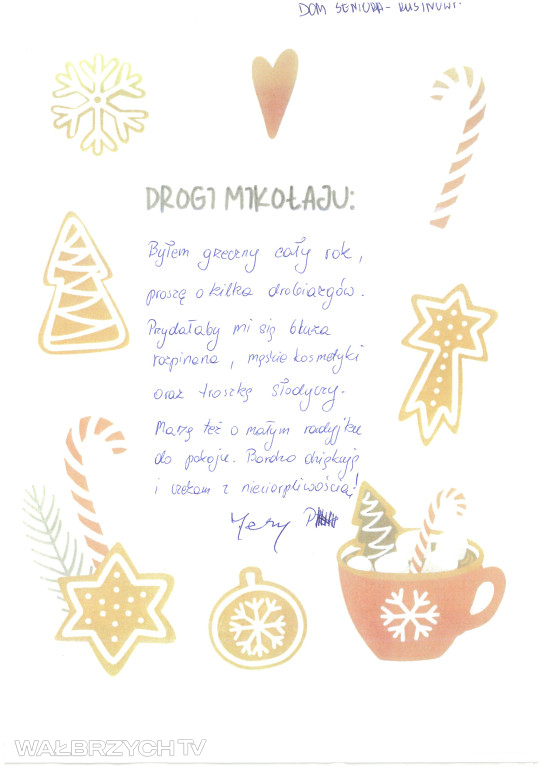 DOM SENIORA - RUSINOWA
DROGI MIKOŁAJU:
Byłem grzeczny cały rok,
proszę o kilka drobiazgów.
Przydałaby mi się bluza
rozpinana, męskie kosmetyki
oraz troszkę słodyczy.
Marzę też o małym radyjku
do pokoju. Bardzo dziękuję
i czekam z niecierpliwością!
Jerzy P
WAŁBRZYCH TV